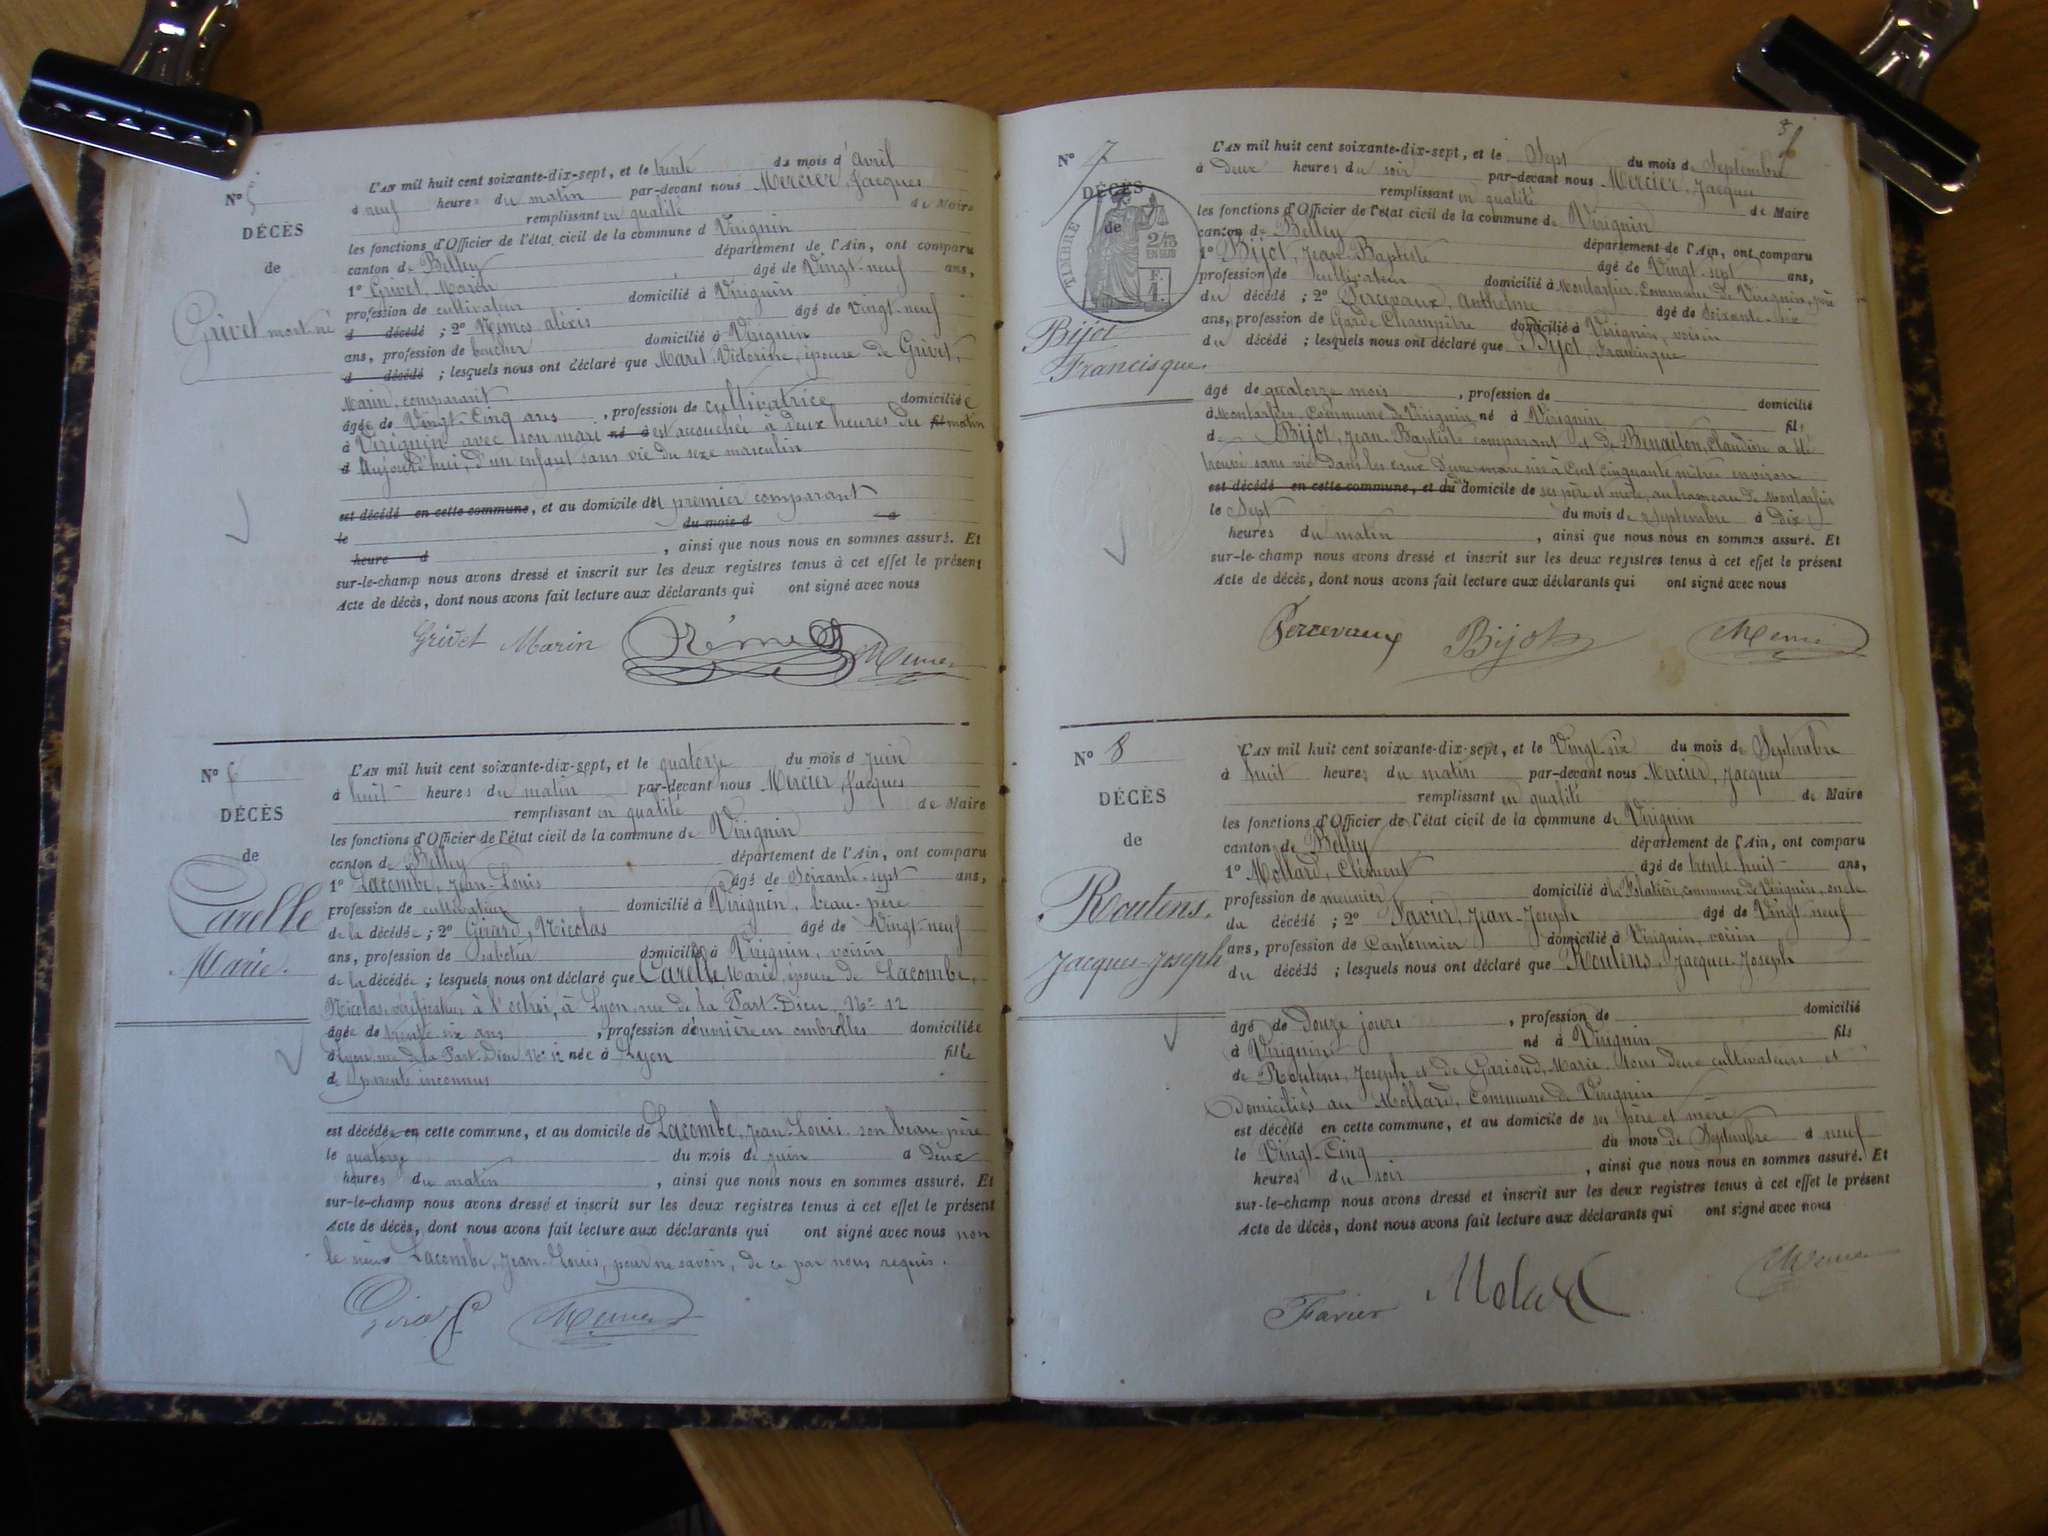 N° 5
DÉCÈS
de
Grivet mort-né
L'AN mil huit cent soixante-dix-sept, et le trente du mois d'avril
à neuf heures du matin par-devant nous Mercier, Jacques
remplissant en qualité de Maire
les fonctions d'Officier de l'état civil de la commune d Virignin
canton de Belley département de l'Ain, ont comparu
1° Grivet, Marin âgé de Vingt-neuf ans,
profession de cultivateur domicilié à Virignin
d décédé ; 2° Némes alexis âgé de vingt-neuf
ans, profession de boucher domicilié à Virignin
d décédé ; lesquels nous ont déclaré que Maret Victorine, épouse de Grivet,
Marin, comparant
âgée de Vingt-Cinq ans, profession de cultivatrice domiciliée
à Virignin avec son mari né à est accouchée à deux heures du fil matin
d Aujourd'hui, d'un enfant sans vie du sexe masculin
est décédé en cette commune, et au domicile del premier comparant
le du mois d a
heure d , ainsi que nous nous en sommes assuré. Et
sur-le-champ nous avons dressé et inscrit sur les deux registres tenus à cet effet le présent
Acte de décès, dont nous avons fait lecture aux déclarants qui ont signé avec nous
Grivet Marin Némes Mercier
N° 6
DÉCÈS
de
Carelle
Marie.
L'AN mil huit cent soixante-dix-sept, et le quatorze du mois d Juin
à huit heures du matin par-devant nous Mercier, Jacques
remplissant en qualité de Maire
les fonctions d'Officier de l'état civil de la commune de Virignin
canton de Belley département de l'Ain, ont comparu
1° Lacombe, Jean-Louis âgé de Soixante-sept ans,
profession de cultivateur domicilié à Virignin, beau-père
de la décédée ; 2° Girard, Nicolas âgé de Vingt-neuf
ans, profession de Sabotier domicilié à Virignin, voisin
de la décédée ; lesquels nous ont déclaré que Carelle Marie, épouse de Lacombe,
Nicolas, vérificateur à l'octroi, à Lyon, rue de la Part-Dieu, N° 12
âgée de trente six ans, profession d'ouvrière en ombrelles domiciliée
à Lyon, rue de la Part-Dieu N° 12 née à Lyon fille
de parents inconnus
est décédée en cette commune, et au domicile de Lacombe, Jean-Louis, son beau-père
le quatorze du mois de juin à deux
heures du matin, ainsi que nous nous en sommes assuré. Et
sur-le-champ nous avons dressé et inscrit sur les deux registres tenus à cet effet le présent
Acte de décès, dont nous avons fait lecture aux déclarants qui ont signé avec nous non
le sieur Lacombe, Jean-Louis, pour ne savoir, de ce par nous requis.
Girard Mercier
N° 7
DÉCÈS
de
TIMBRE
Bijot
Francisque.
L'AN mil huit cent soixante-dix-sept, et le Sept du mois de Septembre
à deux heures du soir par-devant nous Mercier, Jacques
remplissant en qualité de Maire
les fonctions d'Officier de l'état civil de la commune de Virignin
canton de Belley département de l'Ain, ont comparu
1° Bijot, Jean-Baptiste âgé de Vingt-sept ans,
profession de cultivateur domicilié à Montarfier, Commune de Virignin, père
du décédé ; 2° Percevaux, Anthelme âgé de Soixante-six
ans, profession de Garde Champêtre domicilié à Virignin, voisin
du décédé ; lesquels nous ont déclaré que Bijot, Francisque
âgé de quatorze mois, profession de domicilié
à Montarfier, Commune de Virignin né à Virignin fils
de Bijot, Jean-Baptiste comparant et de Benaiton, Claudine a été
trouvé sans vie dans les eaux d'une mare sise à Cent Cinquante mètres environ
est décédé en cette commune, et du domicile de ses père et mère, au hameau de Montarfier
le Sept du mois de Septembre à dix
heures du matin, ainsi que nous nous en sommes assuré. Et
sur-le-champ nous avons dressé et inscrit sur les deux registres tenus à cet effet le présent
Acte de décès, dont nous avons fait lecture aux déclarants qui ont signé avec nous
Percevaux Bijot Mercier
N° 8
DÉCÈS
de
Routens,
Jacques-Joseph
L'AN mil huit cent soixante-dix-sept, et le Vingt-six du mois de Septembre
à huit heures du matin par-devant nous Mercier, Jacques
remplissant en qualité de Maire
les fonctions d'Officier de l'état civil de la commune de Virignin
canton de Belley département de l'Ain, ont comparu
1° Mollard, Clément âgé de trente-huit ans,
profession de meunier domicilié à la Folatière, commune de Virignin, oncle
du décédé ; 2° Favier, Jean-Joseph âgé de Vingt-neuf
ans, profession de Cantonnier domicilié à Virignin, voisin
du décédé ; lesquels nous ont déclaré que Routens, Jacques-Joseph
âgé de douze jours, profession de domicilié
à Virignin né à Virignin fils
de Routens, Joseph et de Gariond, Marie, tous deux cultivateurs et
domiciliés au Mollard, Commune de Virignin
est décédé en cette commune, et au domicile de ses père et mère
le Vingt-Cinq du mois de Septembre à neuf
heures du soir, ainsi que nous nous en sommes assuré. Et
sur-le-champ nous avons dressé et inscrit sur les deux registres tenus à cet effet le présent
Acte de décès, dont nous avons fait lecture aux déclarants qui ont signé avec nous
Favier Molard Mercier